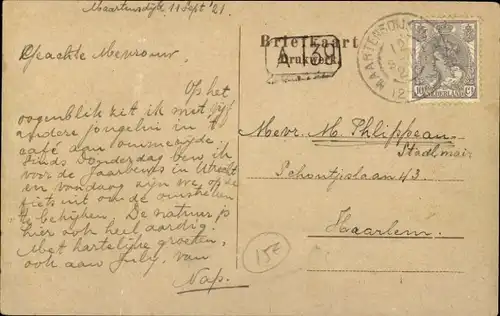 Maartensdijk, 11 Sept '21.
Geachte Mevrouw,
Op het
oogenblik zit ik met vijf
andere jongelui in 't
café aan
Sinds Donderdag ben ik
voor de Jaarbeurs in Utrecht
en vandaag zijn we op de
fiets uit om de omstreken
te bekijken. De natuur is
hier ook heel aardig.
Met hartelijke groeten,
ook aan July, van
Nap.
Briefkaart
Drukwerk.
A 130
MAARTENSDIJK
12
NEDERLAND
10 CT
Mevr. M. Phlippeau-
Stadlmair
Schoutjeslaan 43
Haarlem.
15E